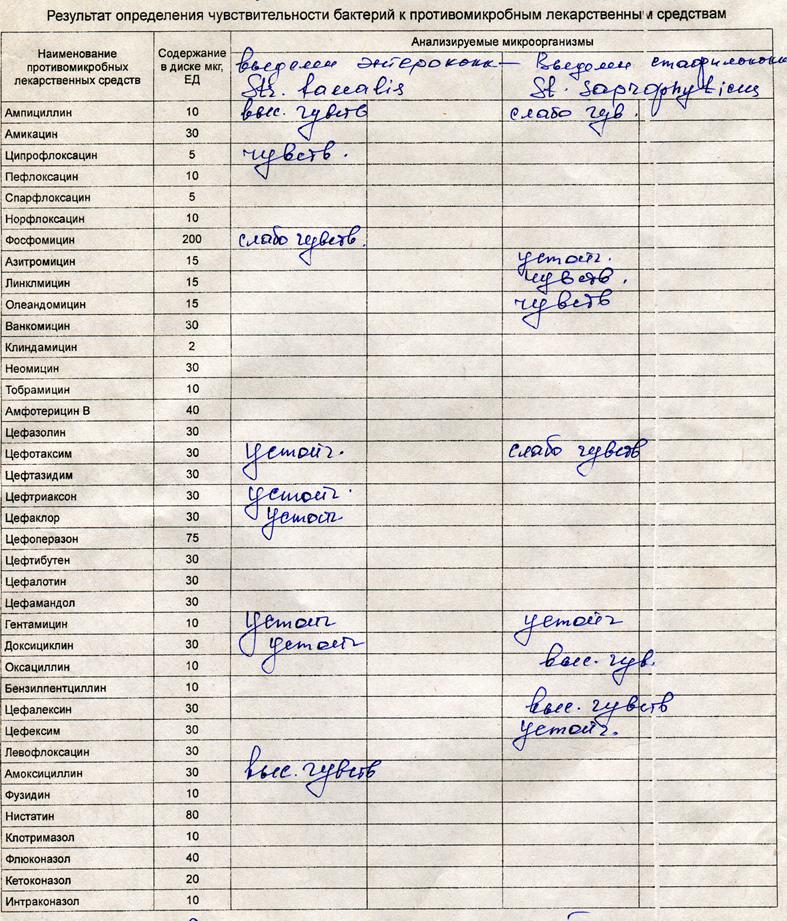 Результат определения чувствительности бактерий к противомикробным лекарственным средствам
Наименование противомикробных лекарственных средств Содержание в диске мкг, ЕД Анализируемые микроорганизмы
введелен энтерококк — Введелен стафилококк
Str. faecalis St. Saprophyticus
Ампициллин 10 выс. чувств слабо чув.
Амикацин 30
Ципрофлоксацин 5 чувств.
Пефлоксацин 10
Спарфлоксацин 5
Норфлоксацин 10
Фосфомицин 200 слабо чувств.
Азитромицин 15 устойч.
Линклмицин 15 чувств.
Олеандомицин 15 чувств
Ванкомицин 30
Клиндамицин 2
Неомицин 30
Тобрамицин 10
Амфотерицин В 40
Цефазолин 30
Цефотаксим 30 устойч. слабо чувств
Цефтазидим 30
Цефтриаксон 30 устойч.
Цефаклор 30 устойч
Цефоперазон 75
Цефтибутен 30
Цефалотин 30
Цефамандол 30
Гентамицин 10 устойч устойч
Доксициклин 30 устойч
Оксациллин 10 выс. чув.
Бензилпентциллин 10
Цефалексин 30 выс. чувств
Цефексим 30 устойч.
Левофлоксацин 30
Амоксициллин 30 выс. чувств
Фузидин 10
Нистатин 80
Клотримазол 10
Флюконазол 40
Кетоконазол 20
Интраконазол 10